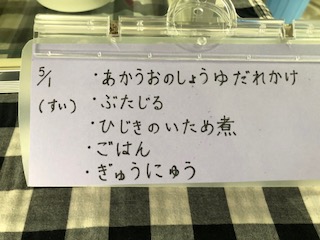 5/1
(すい)
・あかうおのしょうゆだれかけ
・ぶたじる
・ひじきのいため煮
・ごはん
・ぎゅうにゅう